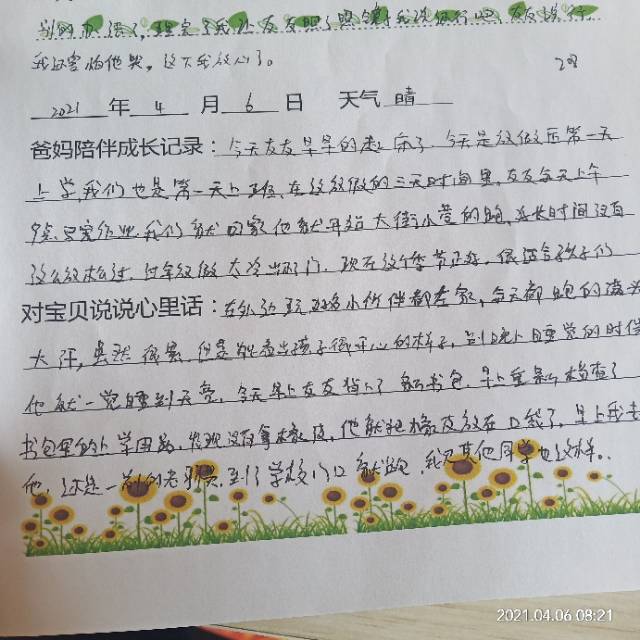 别的办法了,
我还害怕他哭,这下我放心了。 28
2021 年 4 月 6 日 天气 晴
爸妈陪伴成长记录:今天友友早早的起床了,今天是放假后第一天
上学,我们也是第一天上班,在放假的三天时间里,友友每天上午
我们就回家他就开始大街小巷的跑,好长时间没有
这么放松过,过年放假太冷出不了门,现在这个季节正好,很适合孩子们
对宝贝说说心里话:在外边玩,小伙伴都在家,每天都跑的满头
大汗,虽然很累,但是能看出孩子很开心的样子,到晚上睡觉的时候
他就一觉睡到天亮,今天早上友友背上了新书包,早上重新检查了
书包里的上学用品,发现没有拿橡皮,他就把橡皮放在口袋了,早上我去
他,还是一到学校门口就跑,我见其他同学也这样。
2021.04.06 08:21